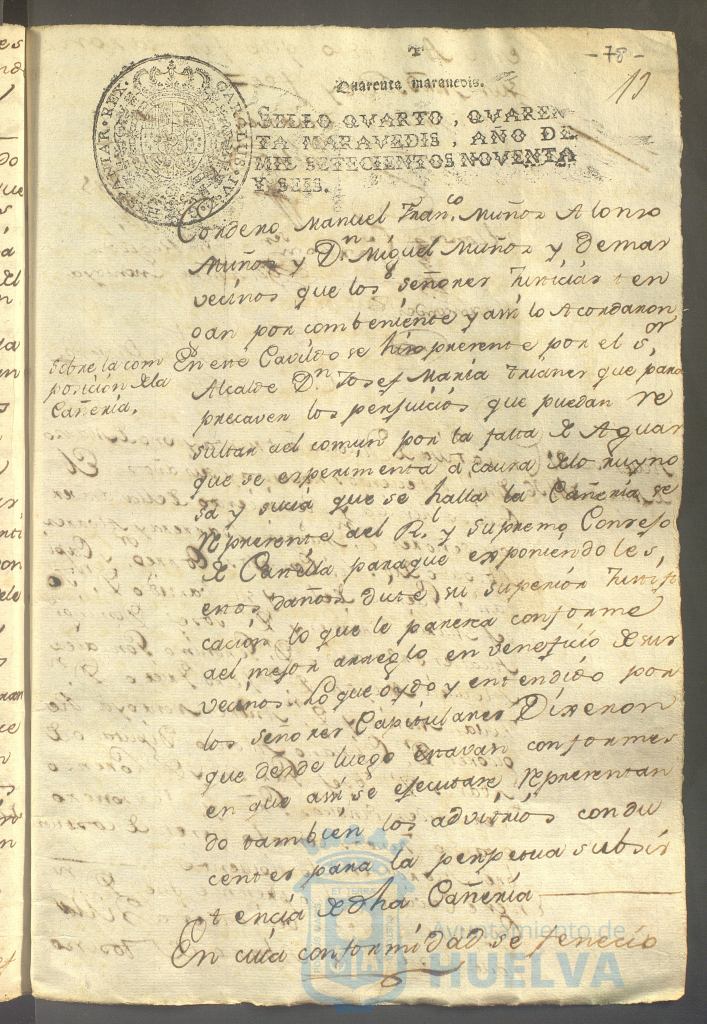 - 78 -
19
Quarenta marauedis.
SELLO QVARTO, QVAREN-
TA MARAVEDIS, AÑO DE
MIL SETECIENTOS NOVENTA
Y SEIS.
CAROLUS IV
HISPANIAR. REX
Cordero Manuel Franco. Muñoz Alonso
Muñoz y Dn. Miguel Muñoz y demas
vecinos que los señores Justicias ten
gan por combeniente y assi lo Acordaron
Sobre la com
posicion de la
Cañeria.
En este Cavildo se hizo presente por el Sor.
Alcalde Dn. Josef Maria Trianes que para
precaver los perjuicios que puedan re
sultar del comun por la falta de Aguas
que se experimenta a causa de lo ruyno
sa y sucia que se halla la Cañeria se
represente al Rl. y Supremo Consejo
de Castilla para que exponiendoles,
estos daños dicte su superior Justifi
cacion lo que le paresca conforme
al mejor arreglo en beneficio de sus
vecinos Lo que oydo y entendido por
los señores Capitulares Dixeron
que desde luego estavan conformes
en que assi se ejecutase representan
do tambien los advitrios condu
centes para la perpetua subsis
tencia de dha Cañeria
En cuia conformidad se fenecio
Ayuntamiento de
HUELVA